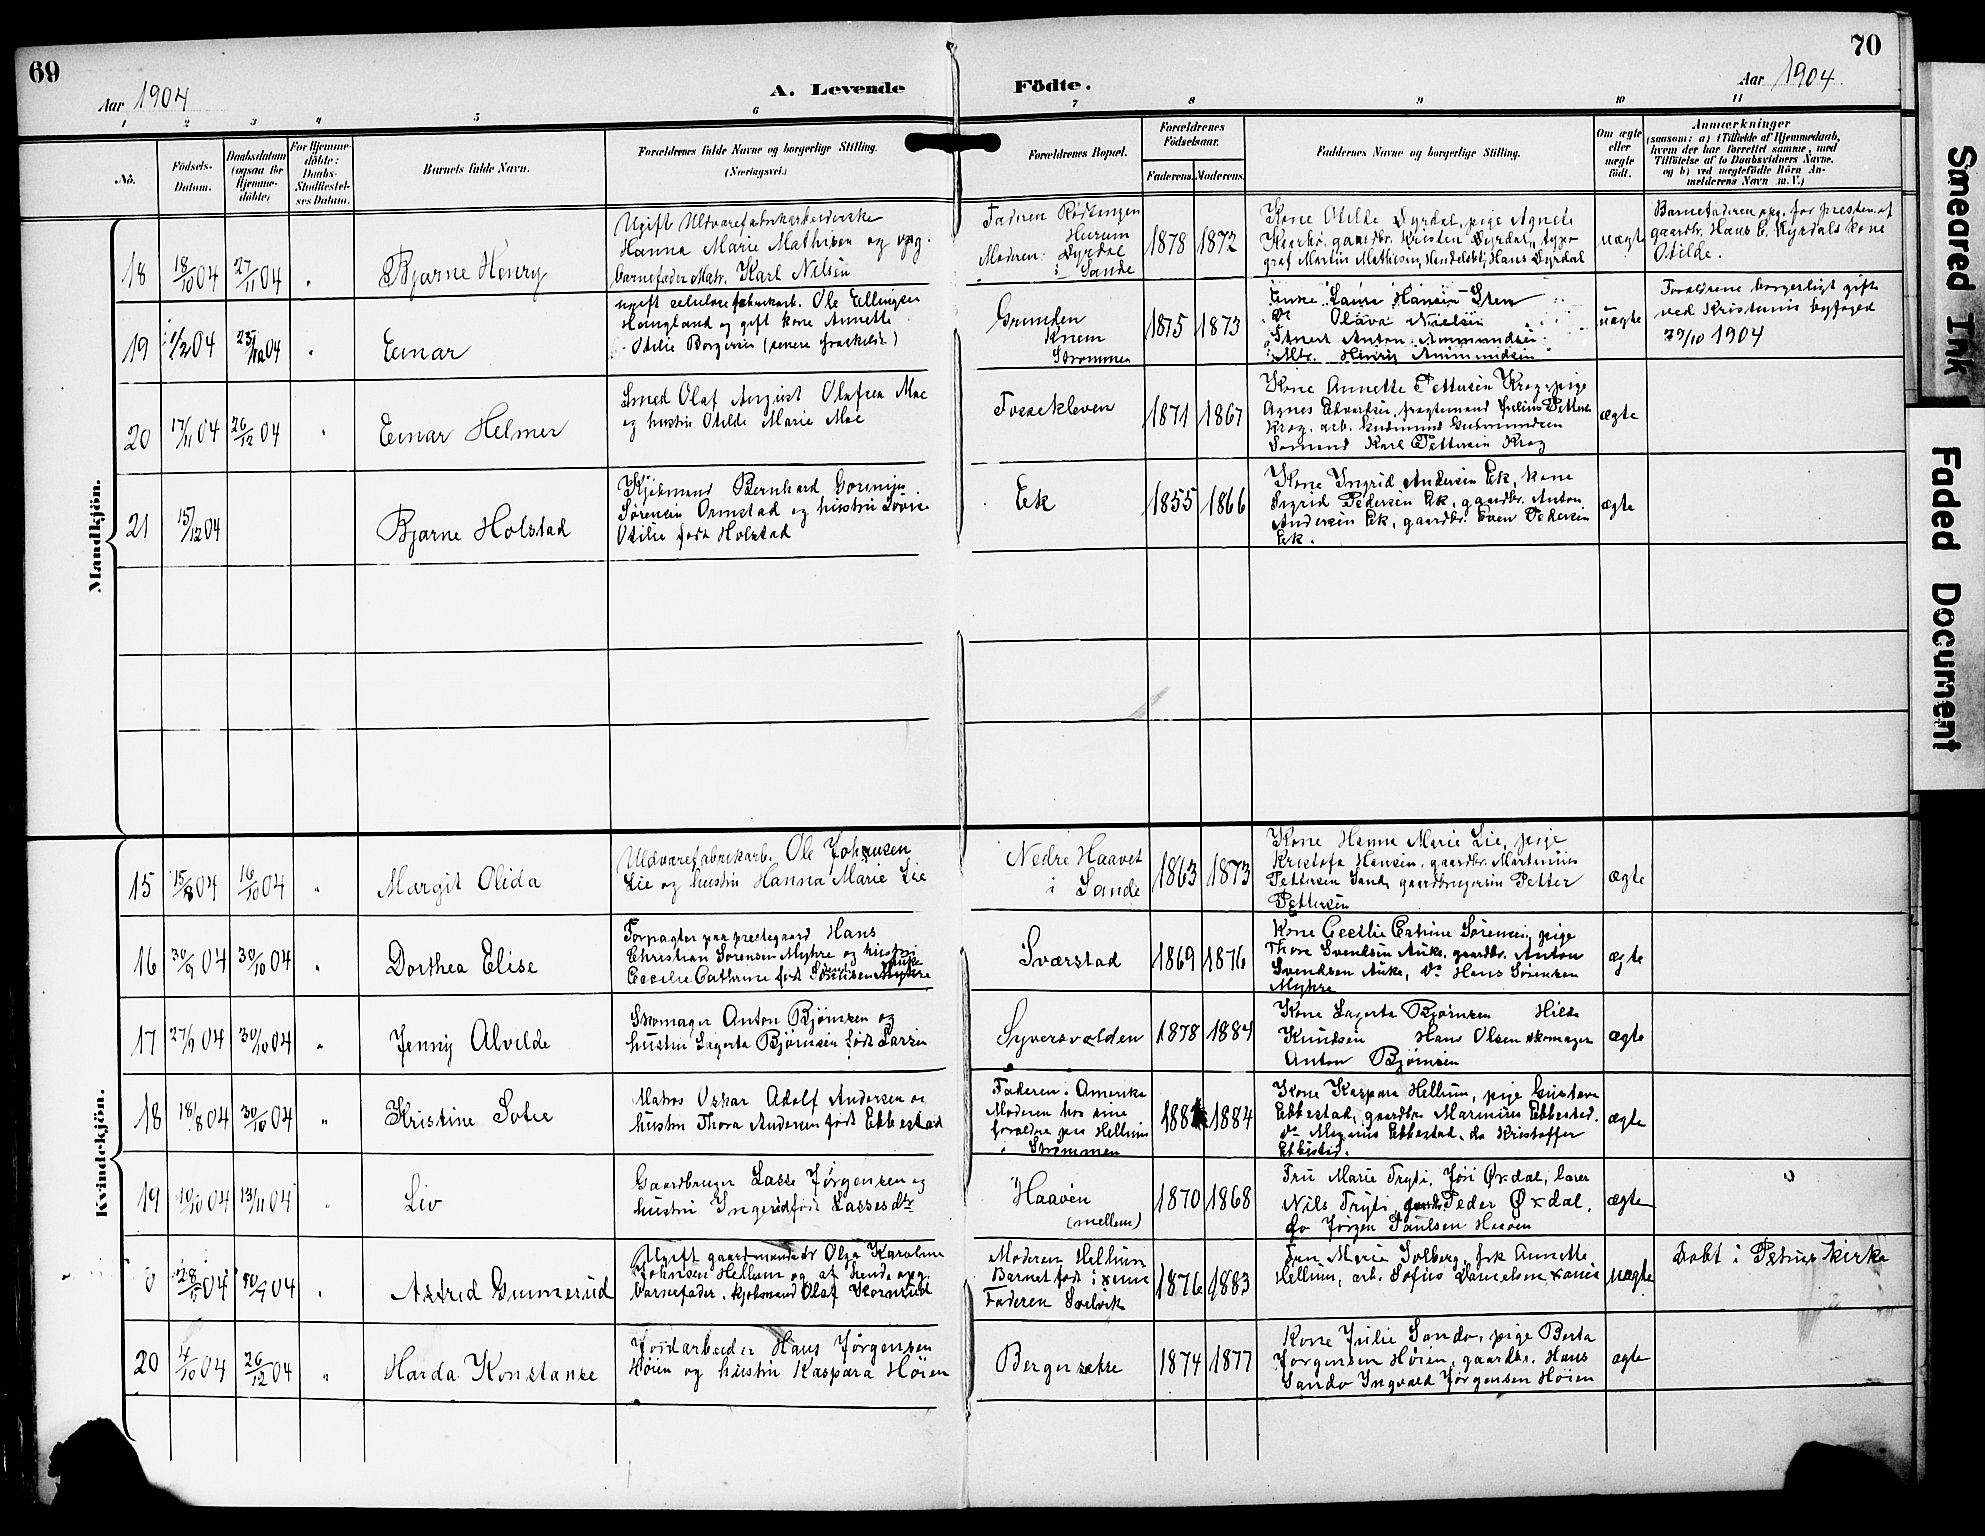 69
70
Aar 1904
A. Levende Födte.
Aar 1904
1 2 3 4 5 6 7 8 9 10 11
No.
Födsels-Datum.
Daabsdatum (ogsaa for Hjemmedöbte)
For Hjemmedöbte: Daabs-Stadfæstelses Datum.
Barnets fulde Navn.
Forældrenes fulde Navne og borgerlige Stilling.
(Næringsvei.)
Forældrenes Bopæl.
Forældrenes Födselsaar.
Faderens. Moderens.
Faddernes Navne og borgerlige Stilling.
Om ægte eller uægte födt.
Anmærkninger
(saasom: a) i Tilfælde af Hjemmedaab,
hvem der har forrettet samme, med
Tilföielse af to Daabsvidners Navne,
og b) ved uægtefödte Börn An-
melderens Navn m. V.)
Mandkjön.
18 18/10 04 27/11 04 " Bjarne Henry
Ugift Uldvarefabrikarbeiderske
Hanna Marie Mathisen og opg.
barnefader Matr. Karl Nilsen
Faderen Rødtangen
Hurum
Moderen: Dyrdal
i Sande
1878 1872
Kone Otilde Dyrdal, pige Agnete
gaardbr. Kristen Dyrdal, typo-
graf Martin Mathisen, Hans Dyrdal
uægte
Barnefaderen opg. for presten af
gaardbr. Hans C. Dyrdals kone
Otilde.
19 1/2 04 04 " Einar
ugift celulosefabrikarb. Ole Ellingsen
Haugland og gift kone Annette
Otilie Borgersen (senere fraskilt)
Grunden
Knem
Strømmen
1875 1873
Enke Laura Hansen Sten
Do Olava Nielsen
Anton Ammundsen
Henrik Ammundsen
uægte
Forældrene borgerligt gift
ved Kristiania byfoged
29/10 1904
20 17/11 04 26/12 04 " Einar Helmer
Smed Olaf August Olafsen Moe
og hustru Otilde Marie Moe
Fossekleven
1871 1867
Kone Annette Pettersen Krog, pige
Agnes Edvardsen, fragtemand Julius Petters.
Krog, arb. Gudmund Gudmundsen
Sømand Karl Pettersen Krog
ægte
21 15/12 04 Bjarne Holstad
Kjøbmand Bernhard
Sørensen Ormstad og hustru Lovise
Otilie født Holstad
Ek
1855 1866
Kone Ingrid Andersen Ek, kone
Sigrid Pedersen Ek, gaardbr. Anton
Andersen Ek, gaardbr. Even Pedersen
Ek.
ægte
Kvindekjön.
15 15/8 04 16/10 04 " Margit Olida
Uldvarefabrikarb. Ole Johansen
Lie og hustru Hanna Marie Lie
Nedre Haavet
i Sande
1863 1873
Kone Hanna Marie Lie, pige
Kristofa Hansen, gaardbr. Martinius
Pettersen Sand, gaardbrugersøn Petter
Pettersen
ægte
16 30/9 04 30/10 04 " Dorthea Elise
Forpagter paa prestegaard Hans
Christian Sørensen Myhre og hustru
Cecelie Cathrine født Svendsen Auke Myhre
Sværstad
1869 1876
Kone Cecelie Catrine Sørensen, pige
Thora Svendsen Auke, gaardbr. Anton
Svendsen Auke, Do Hans Sørensen
Myhre
ægte
17 27/9 04 30/10 04 " Jenny Alvilde
Skomager Anton Bjørnsen og
hustru Lagerta Bjørnsen født Larsen
Syversvolden
1878 1884
Kone Lagerta Bjørnsen Hilda
Knudsen Hans Olsen skomager
Anton Bjørnsen
ægte
18 18/8 04 30/10 04 " Kristine Sofie
Matros Oskar Adolf Andersen og
hustru Thora Andersen født Ebbestad
Faderen: Amerika
Moderen hos sine
foreldre paa Hellum
i Strømmen
1881 1884
Kone Kaspara Hellum, pige Gustava
Ebbestad, gaardbr. Marinius Ebbestad,
do Magnus Ebbestad, do Kristoffer
Ebbestad.
ægte
19 10/10 04 13/11 04 " Liv
Gaardbruger Lasse Jørgensen og
hustru Ingerid født Lassesdtr
Haaven
(mellem)
1870 1868
Fru Marie Tryti, Jøri Øxdal, lærer
Nils Tryti, gaardb. Peder Øxdal,
do Jørgen Paulsen Haaven
ægte
0 28/5 04 10/7 04 " Astrid Gunnerud
Ugift gaardmandsdtr Olga Karoline
Johnsen Hellum og af hende opg.
barnefader, kjøbmand Olaf Kornrud
Moderen Hellum
Barnet født i Xania
Faderen Svelvik
1876 1883
Fru Marie Solberg, frk Annette
Hellum, arb. Sofus Danielsen Xania
uægte
Døbt i Petrus kirke
20 4/10 04 26/12 04 " Harda Konstanse
Jordarbeider Hans Jørgensen
Høien og hustru Kaspara Høien
Bergersække
1874 1877
Kone Julie Sando, pige Berta
Jørgensen Høien, gaardbr. Hans
Sando Ingvald Jørgensen Høien
ægte
Smeared Ink
Faded Document